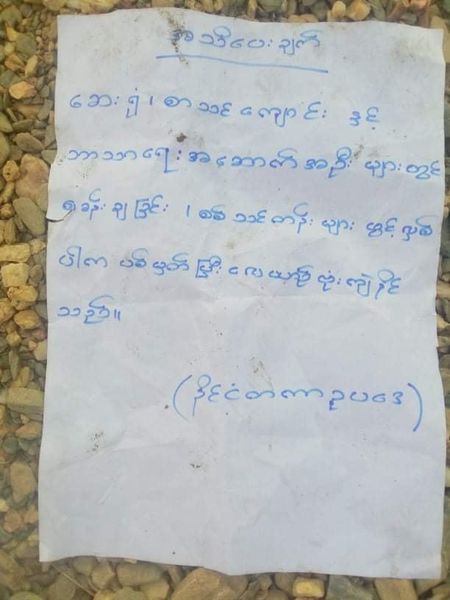 အသိပေးချက်
ဆေးရုံ၊ စာသင်ကျောင်း နှင့်
ဘာသာရေးအဆောက်အဦး များတွင်
စခန်းချခြင်း ၊ စစ်သင်တန်းများ ဖွင့်လှစ်
ပါက ပစ်မှတ်ပြီး လေယာဉ်ဗုံးကြဲနိုင်
သည်။
(နိုင်ငံတကာဥပဒေ)